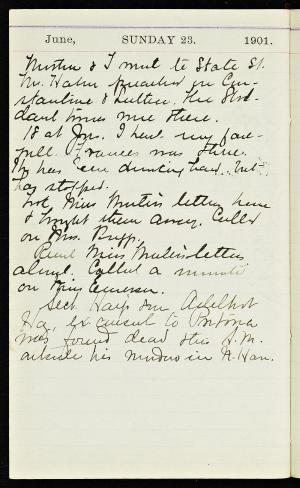 June, SUNDAY 23. 1901.
& I went to State St.
Mr. Hahn preached on Con-
stantine & Luther. The Stod-
dard were there.
18 at Jrs. I had my fare-
well. Frances was there.
has been drinking hard. but
has stopped.
Miss Martin's letter here
& brought them away. Called
on Mrs.
Read Miss letter
aloud. Called a minute
on Miss Emerson.
Sect. Hay's son Adelbert
Hay, ex consul to Pretoria
was found dead this A.M.
outside his window in N. Hav.